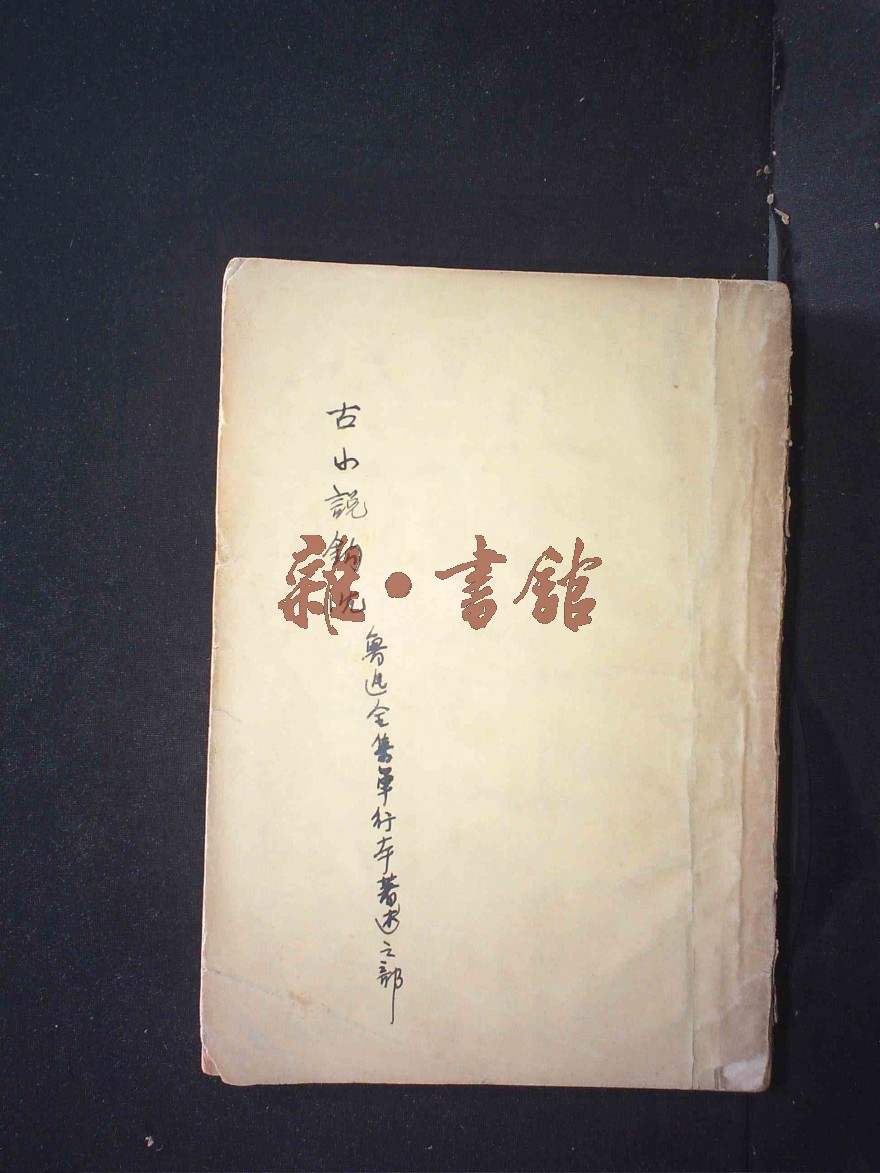 古小説鉤沈
魯迅全集單行本著述之部
雜·書館